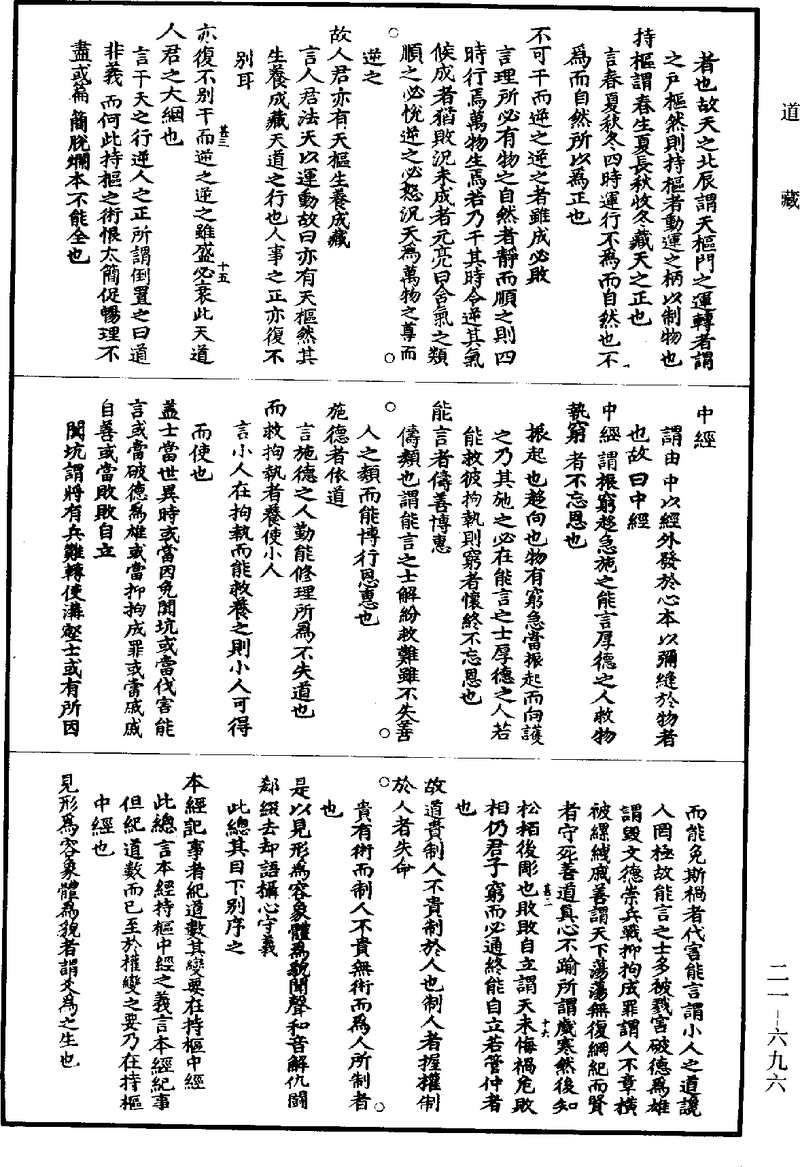 道藏
者也故天之北辰謂天樞門之運轉者謂
之戶樞然則持樞者動運之柄以制物也
持樞謂春生夏長秋收冬藏天之正也
言春夏秋冬四時運行不為而自然也不
為而自然所以為正也
不可干而逆之逆之者雖成必敗
言理所必有物之自然者靜而順之則四
時行焉萬物生焉若乃干其時令逆其氣
候成者猶敗況未成者元亮曰含氣之類
順之必悅逆之必怒況天為萬物之尊而
逆之
故人君亦有天樞生養成藏
言人君法天以運動故曰亦有天樞然其
生養成藏天道之行也人事之正亦復不
別耳
甚三 十五
亦復不別干而逆之逆之雖盛必衰此天道
人君之大綱也
言干天之行逆人之正所謂倒置之曰道
非義而何此持樞之術恨太簡促暢理不
盡或篇簡脫爛本不能全也
中經
謂由中以經外發於心本以彌縫於物者
也故曰中經
中經謂振窮趍急施之能言厚德之人救物
執窮者不忘恩也
振起也趍向也物有窮急當振起而向護
之乃其施之必在能言之士厚德之人若
能救彼拘執則窮者懷終不忘恩也
能言者儔善博惠
儔類也謂能言之士解紛救難雖不失善
人之類而能博行恩惠也
施德者依道
言施德之人勤能修理所為不失道也
而救拘執者養使小人
言小人在拘執而能救養之則小人可得
而使也
蓋士當世異時或當因免闐坑或當伐害能
言或當破德為雄或當抑拘成罪或當戚戚
自善或當敗敗自立
闐坑謂將有兵難轉使溝壑士或有所因
而能免斯禍者代害能言謂小人之道讒
人罔極故能言之士多被戮害破德為雄
謂毀文德崇兵戰抑拘成罪謂人不章橫
被縲絏戚善謂天下蕩蕩無復綱紀而賢
者守死善道真心不踰所謂歲寒然後知
甚三 十六
松栢後彫也敗敗自立謂天未悔禍危敗
相仍君子窮而必通終能自立若管仲者
也
故道貴制人不貴制於人也制人者握權制
於人者失命
貴有術而制人不貴無術而為人所制者
也
是以見形為容象體為貌聞聲和音解仇鬬
郄綴去却語攝心守義
此總其目下別序之
本經記事者紀道數其變要在持樞中經
此總言本經持樞中經之義言本經紀事
但紀道數而已至於權變之要乃在持樞
中經也
見形為容象體為貌者謂爻為之生也
二一－六九六